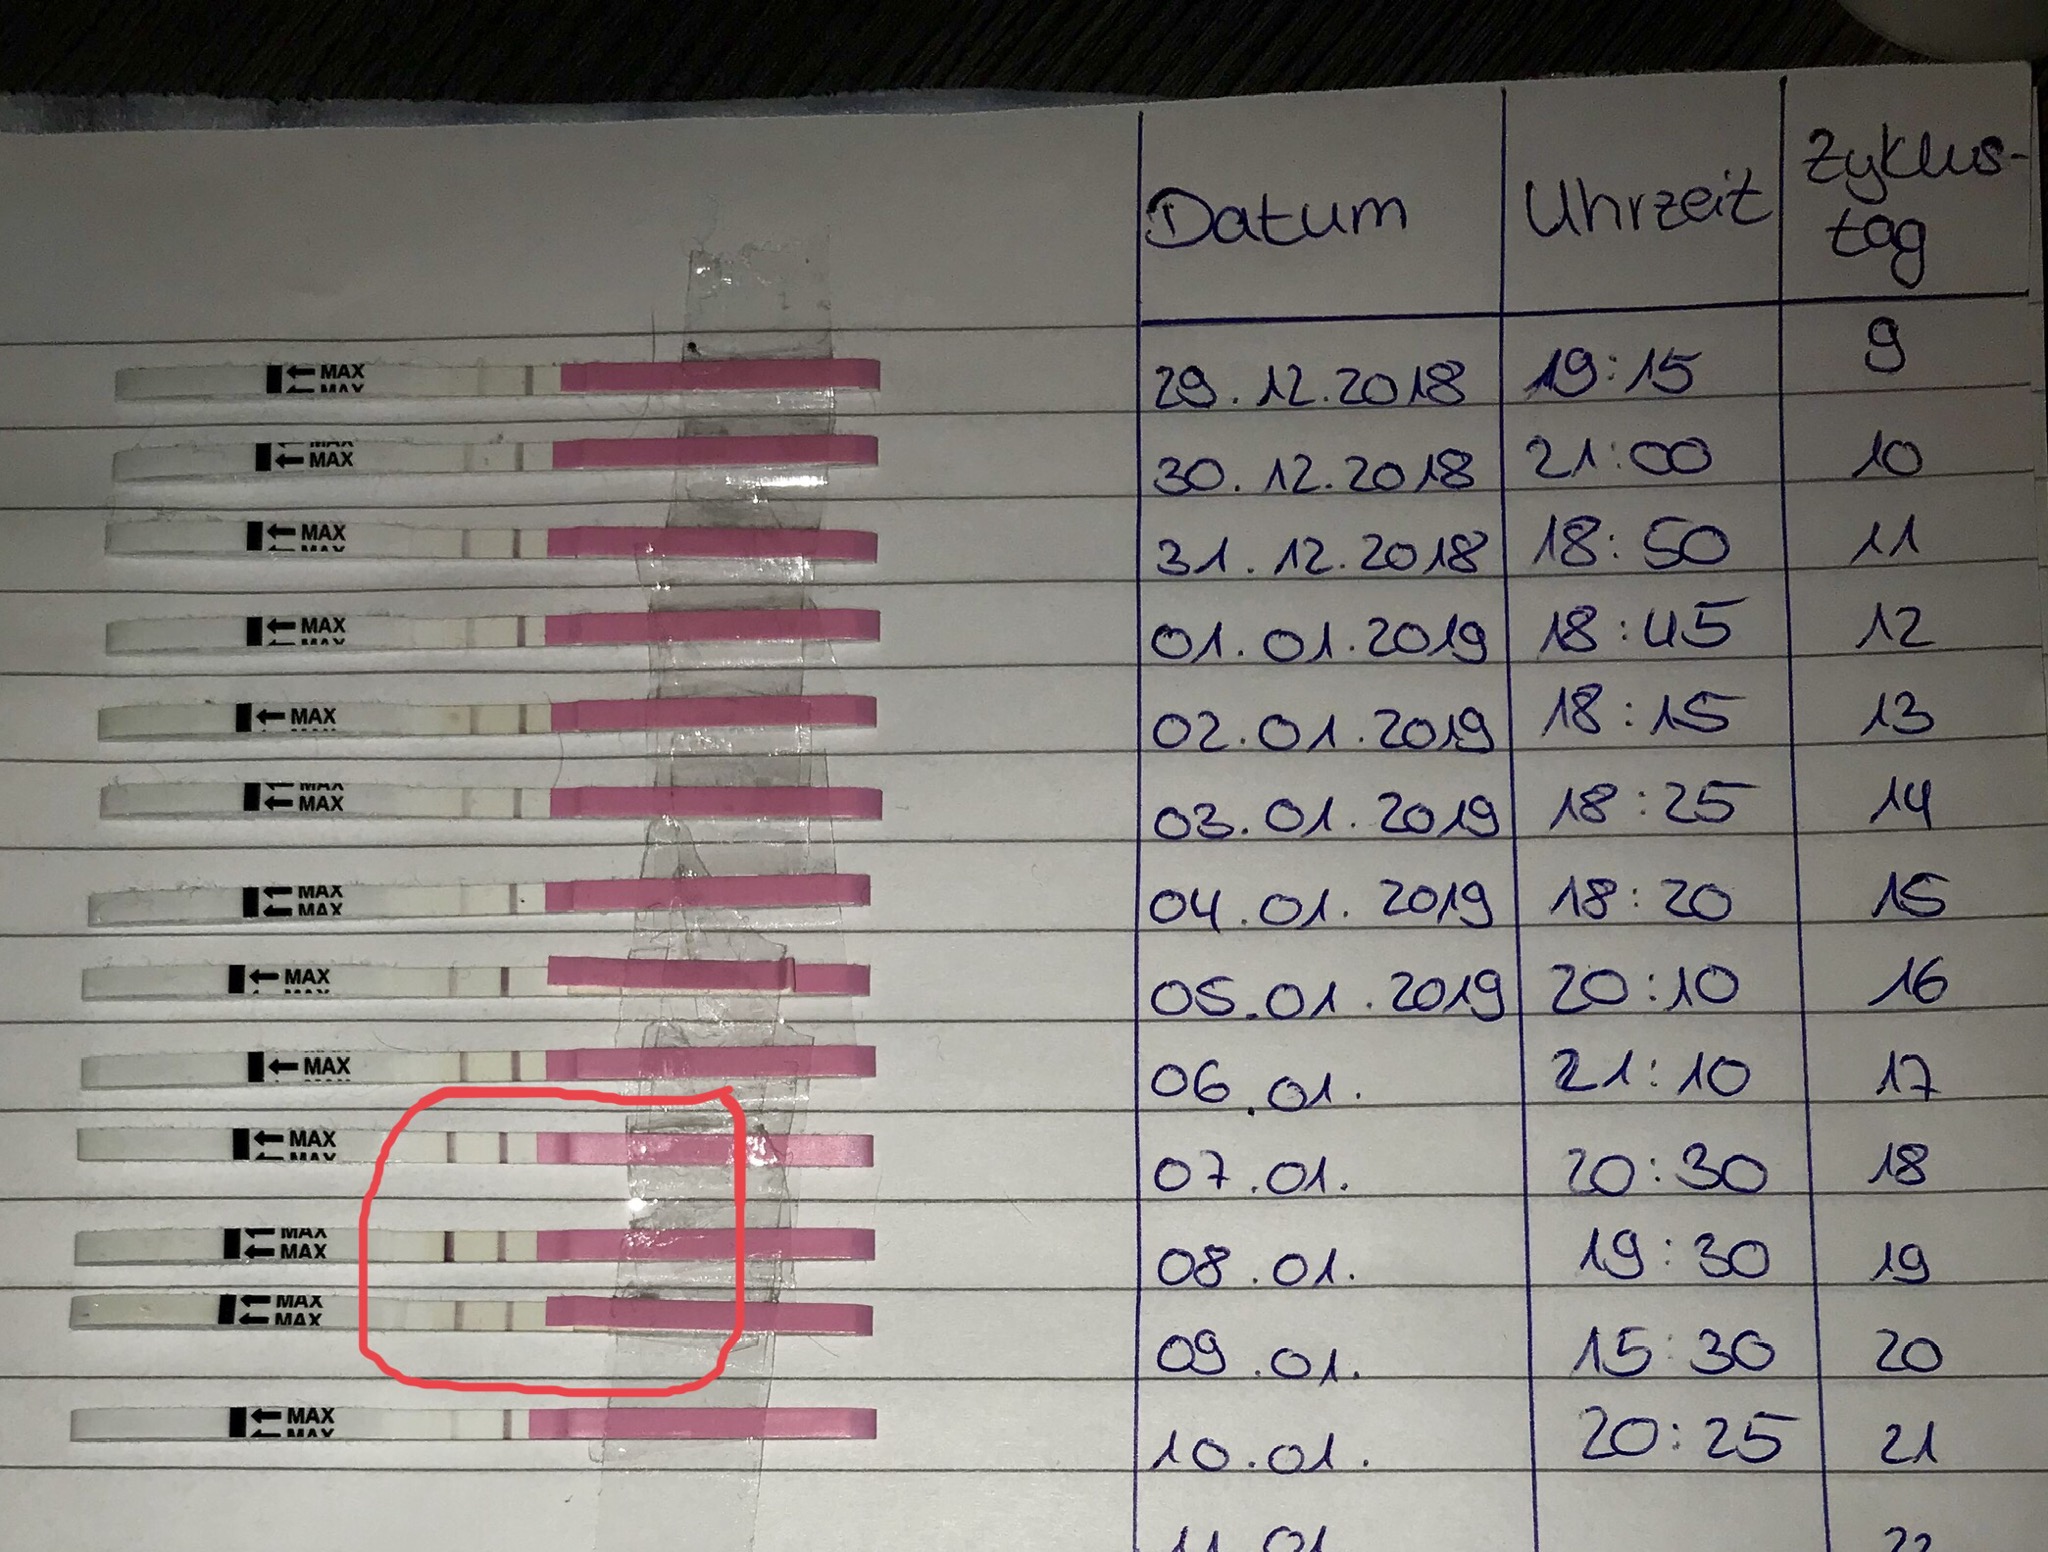 Datum Uhrzeit Zyklus-
tag
← MAX 29.12.2018 19:15 9
← MAX 30.12.2018 21:00 10
← MAX 31.12.2018 18:50 11
← MAX 01.01.2019 18:45 12
← MAX 02.01.2019 18:15 13
← MAX 03.01.2019 18:25 14
← MAX
← MAX 04.01.2019 18:20 15
← MAX 05.01.2019 20:10 16
← MAX 06.01. 21:10 17
← MAX 07.01. 20:30 18
← MAX
← MAX 08.01. 19:30 19
← MAX
← MAX 09.01. 15:30 20
← MAX 10.01. 20:25 21
11.01 22